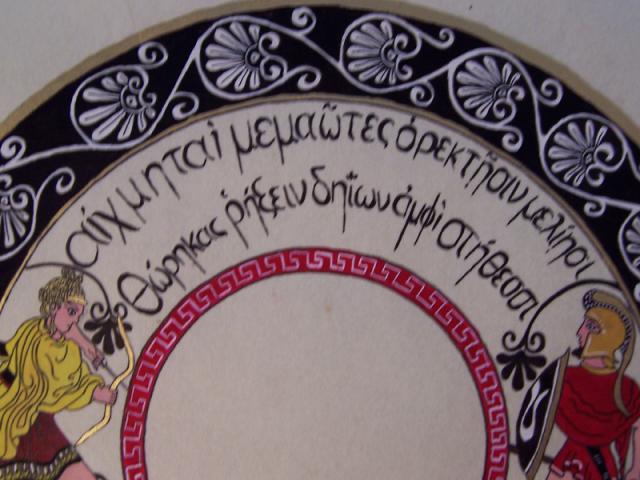 αἰχμηταὶ μεμαῶτες ὀρεκτῇσιν μελίῃσι
θώρηκας ῥήξειν δηΐων ἀμφὶ στήθεσσι